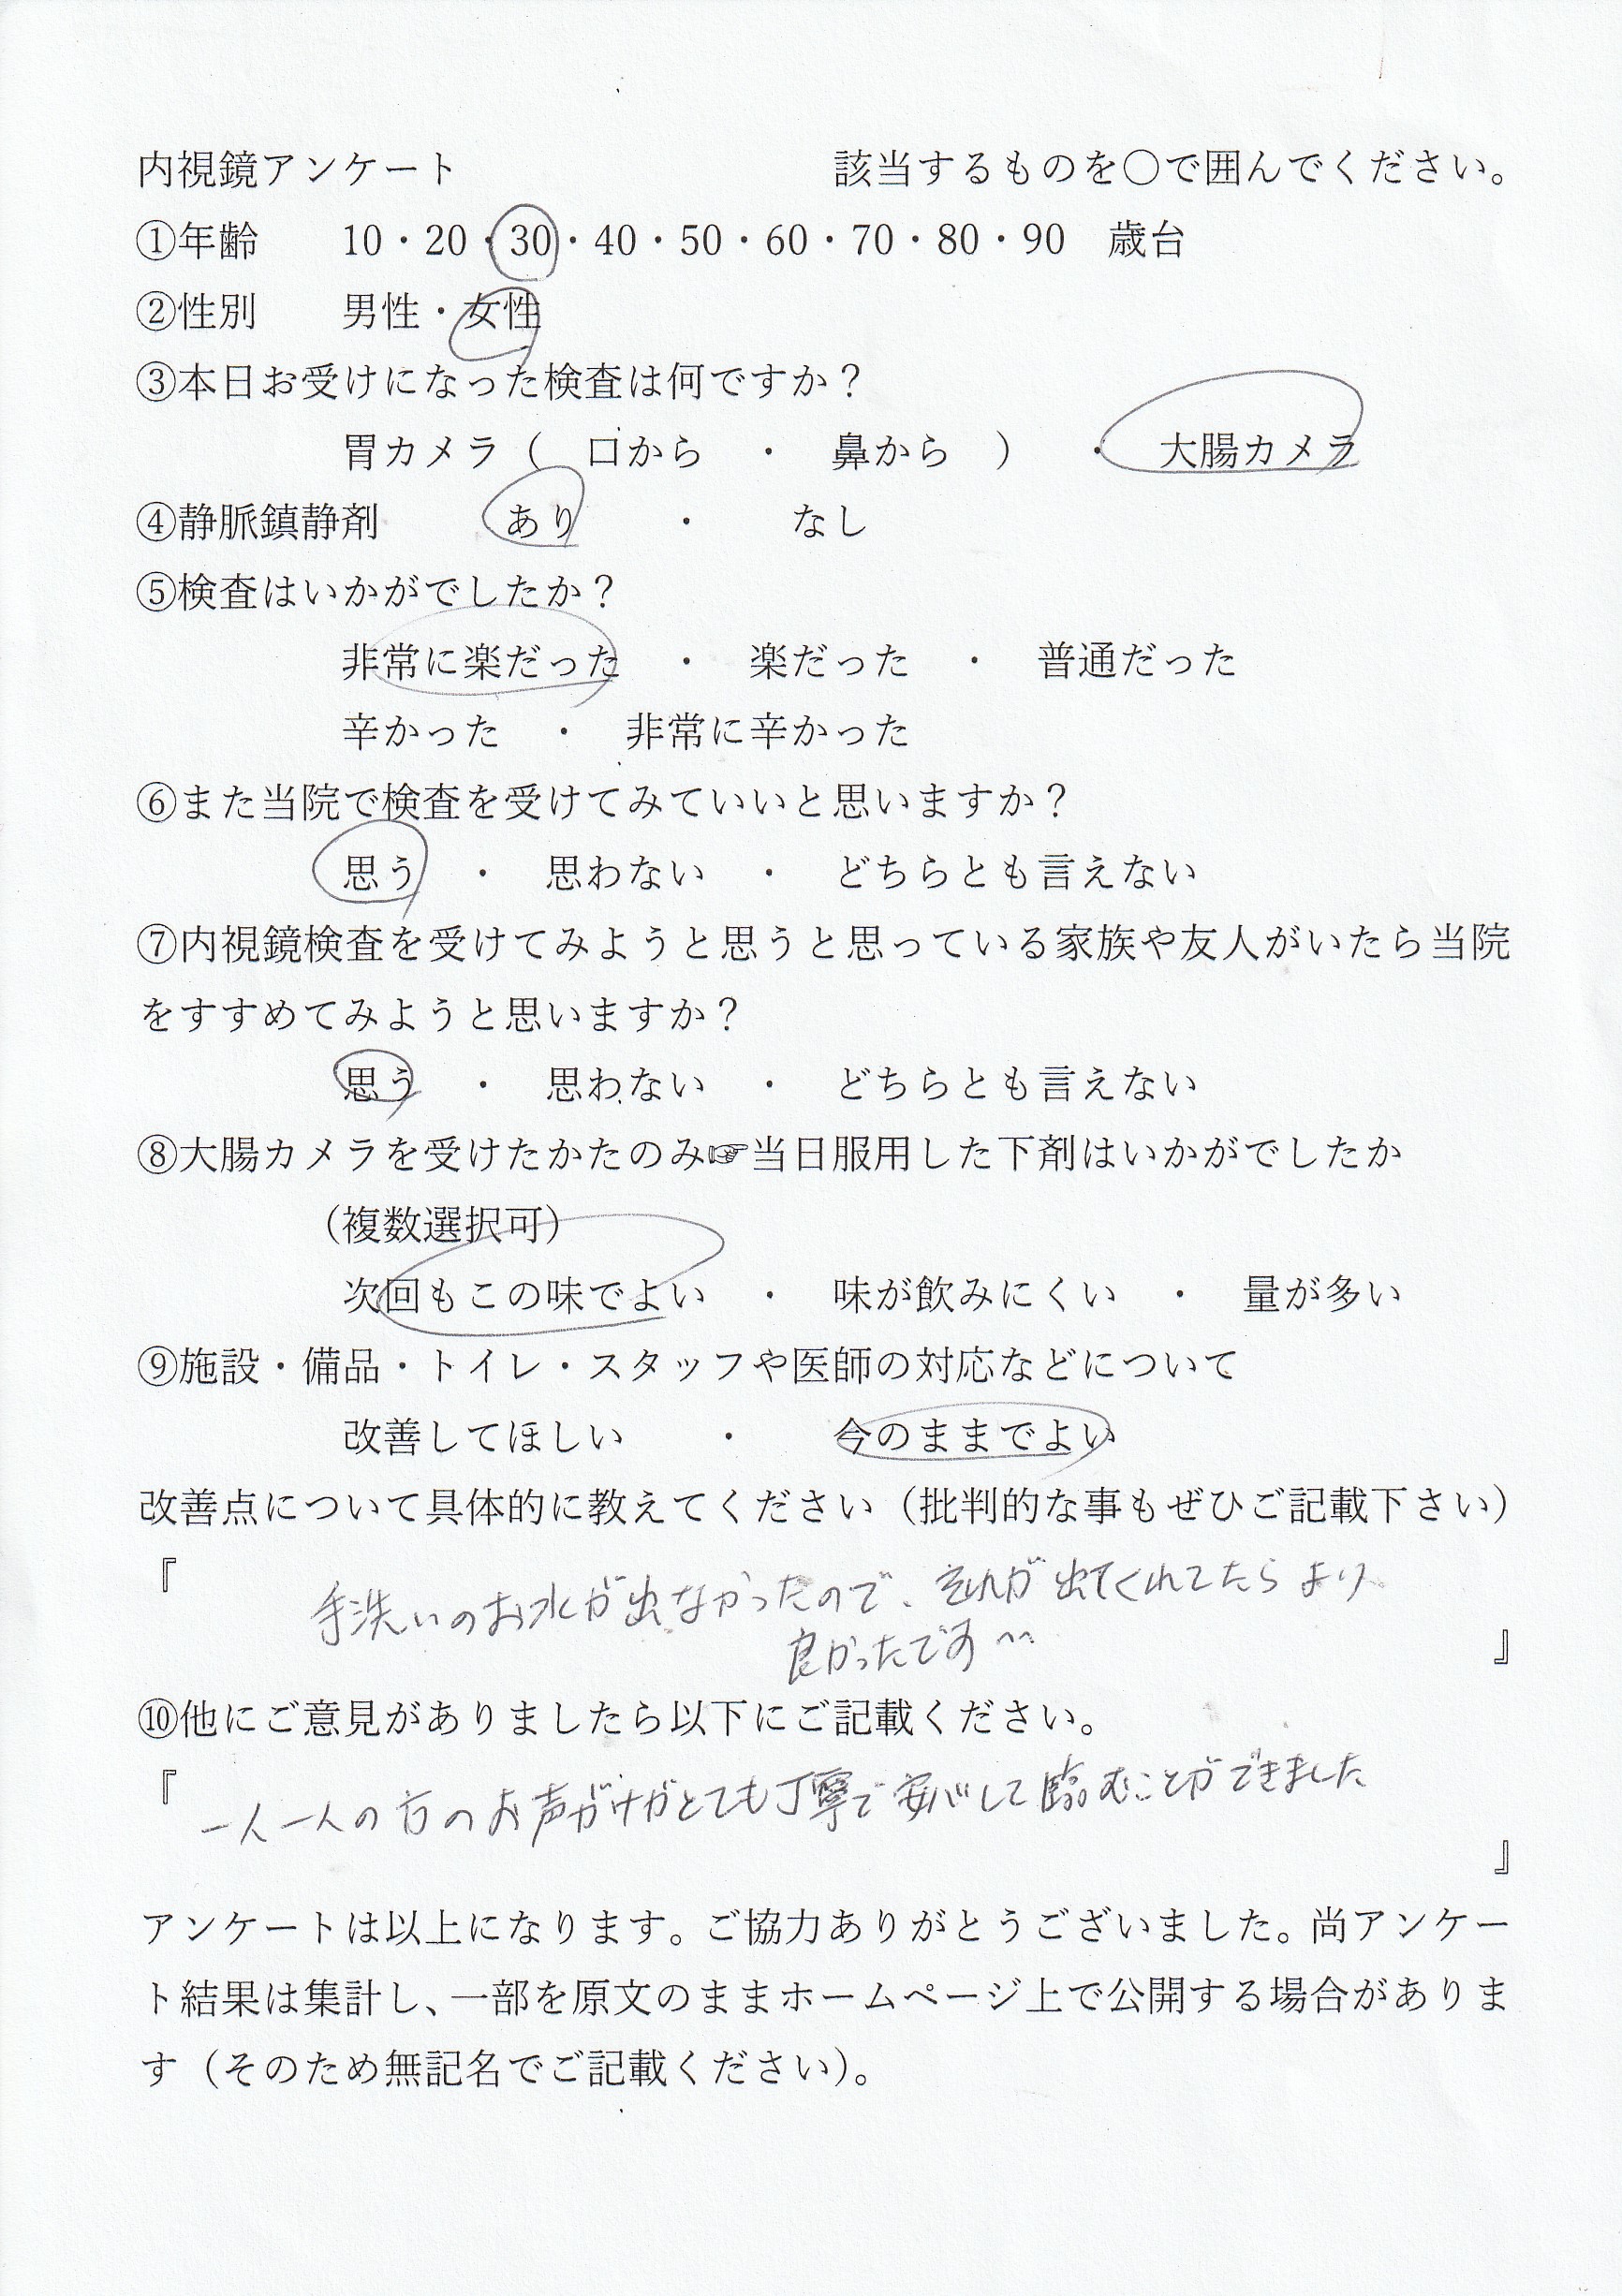 内視鏡アンケート　該当するものを〇で囲んでください。
①年齢　10・20・30・40・50・60・70・80・90　歳台
②性別　男性・女性
③本日お受けになった検査は何ですか？
胃カメラ（　口から　・　鼻から　）　・　大腸カメラ
④静脈鎮静剤　あり　・　なし
⑤検査はいかがでしたか？
非常に楽だった　・　楽だった　・　普通だった
辛かった　・　非常に辛かった
⑥また当院で検査を受けてみていいと思いますか？
思う　・　思わない　・　どちらとも言えない
⑦内視鏡検査を受けてみようと思うと思っている家族や友人がいたら当院
をすすめてみようと思いますか？
思う　・　思わない　・　どちらとも言えない
⑧大腸カメラを受けたかたのみ☞当日服用した下剤はいかがでしたか
（複数選択可）
次回もこの味でよい　・　味が飲みにくい　・　量が多い
⑨施設・備品・トイレ・スタッフや医師の対応などについて
改善してほしい　・　今のままでよい
改善点について具体的に教えてください（批判的な事もぜひご記載下さい）
『　手洗いのお水が出なかったので、それが出てくれてたらより
良かったです^^　』
⑩他にご意見がありましたら以下にご記載ください。
『　一人一人の方のお声がけがとても丁寧で安心して臨むことができました
』
アンケートは以上になります。ご協力ありがとうございました。尚アンケー
ト結果は集計し、一部を原文のままホームページ上で公開する場合がありま
す（そのため無記名でご記載ください）。